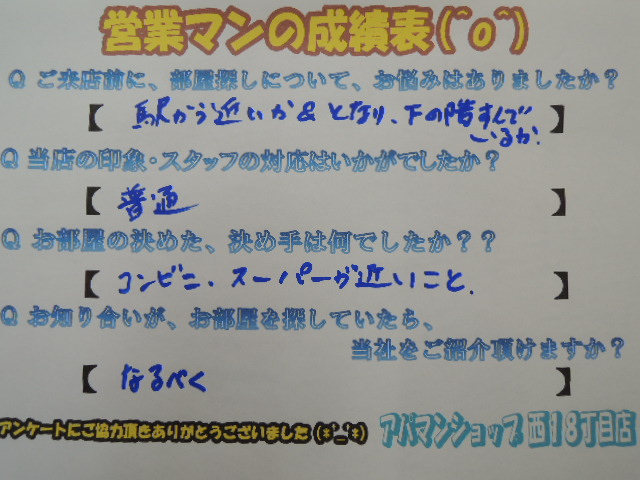 営業マンの成績表(^o^)
Q ご来店前に、部屋探しについて、お悩みはありましたか？
【 駅から近いか & となり、下の階すんで
いるか. 】
Q 当店の印象・スタッフの対応はいかがでしたか？
【 普通 】
Q お部屋の決めた、決め手は何でしたか？？
【 コンビニ、スーパーが近いこと. 】
Q お知り合いが、お部屋を探していたら、
当社をご紹介頂けますか？
【 なるべく 】
アンケートにご協力頂きありがとうございました (*'_'*) アパマンショップ 西18丁目店